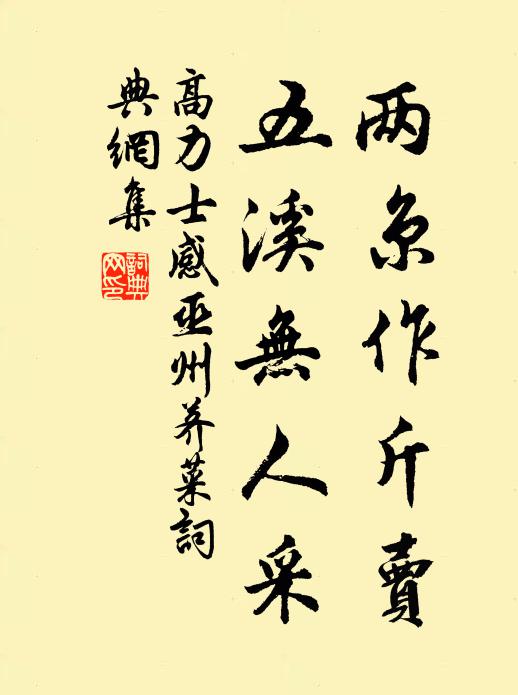 两京作斤賣
五溪無人采
高力士感巫州荠菜詞
典網集
詞典
网印